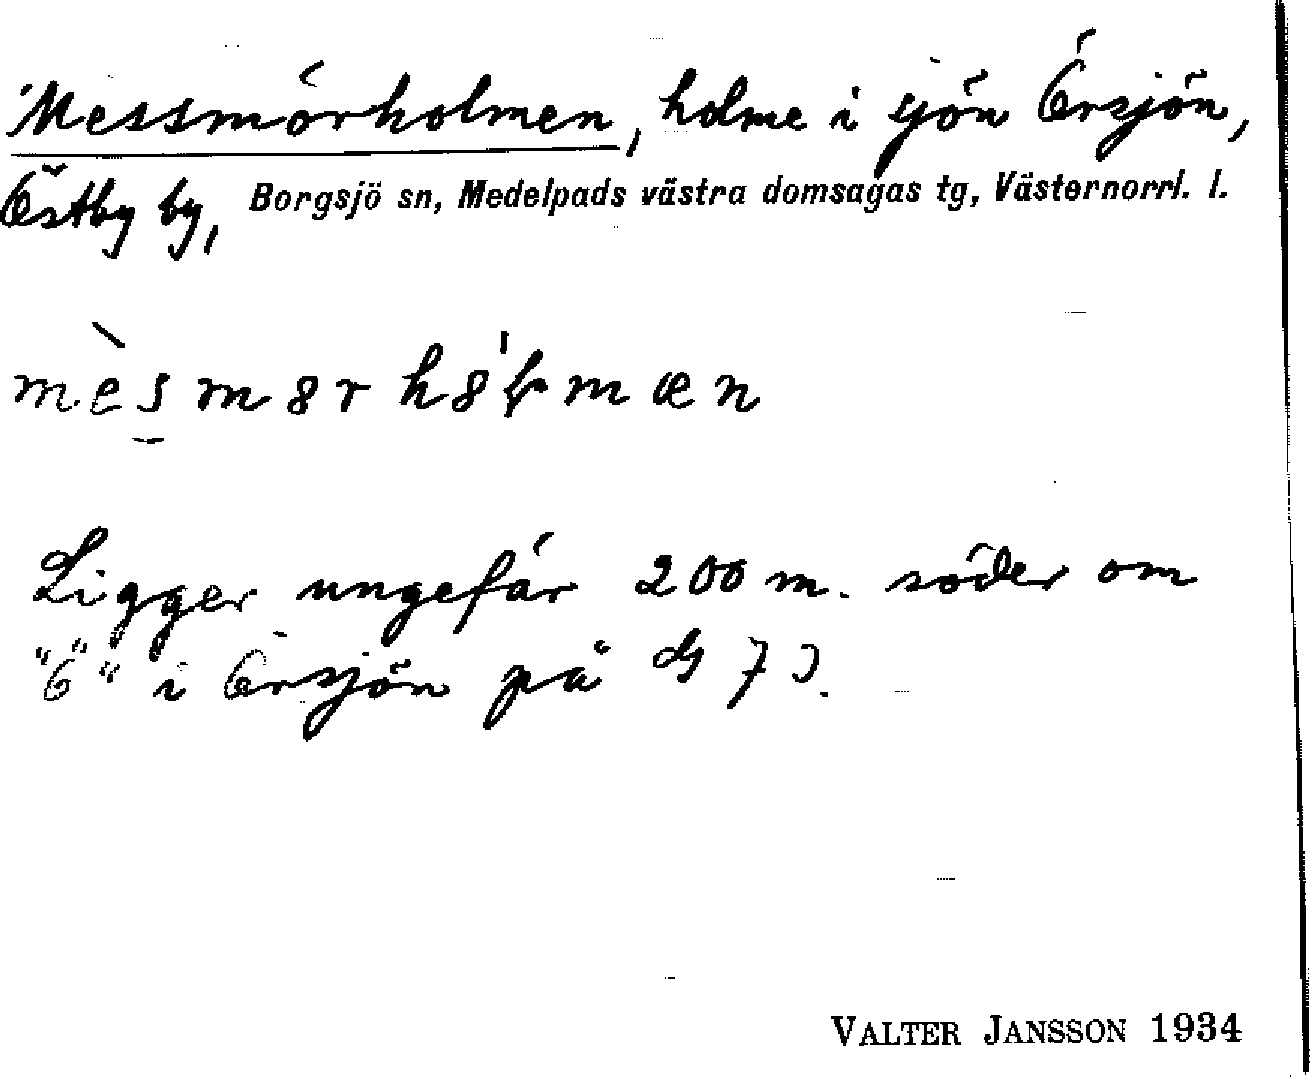 Messmörholmen, holme i sjön Örsjön,
Östby by, Borgsjö sn, Medelpads västra domsagas tg, Västernorrl. l.
Ligger ungefär 200 m. söder om
"Ö" i Örsjön på
VALTER JANSSON 1934